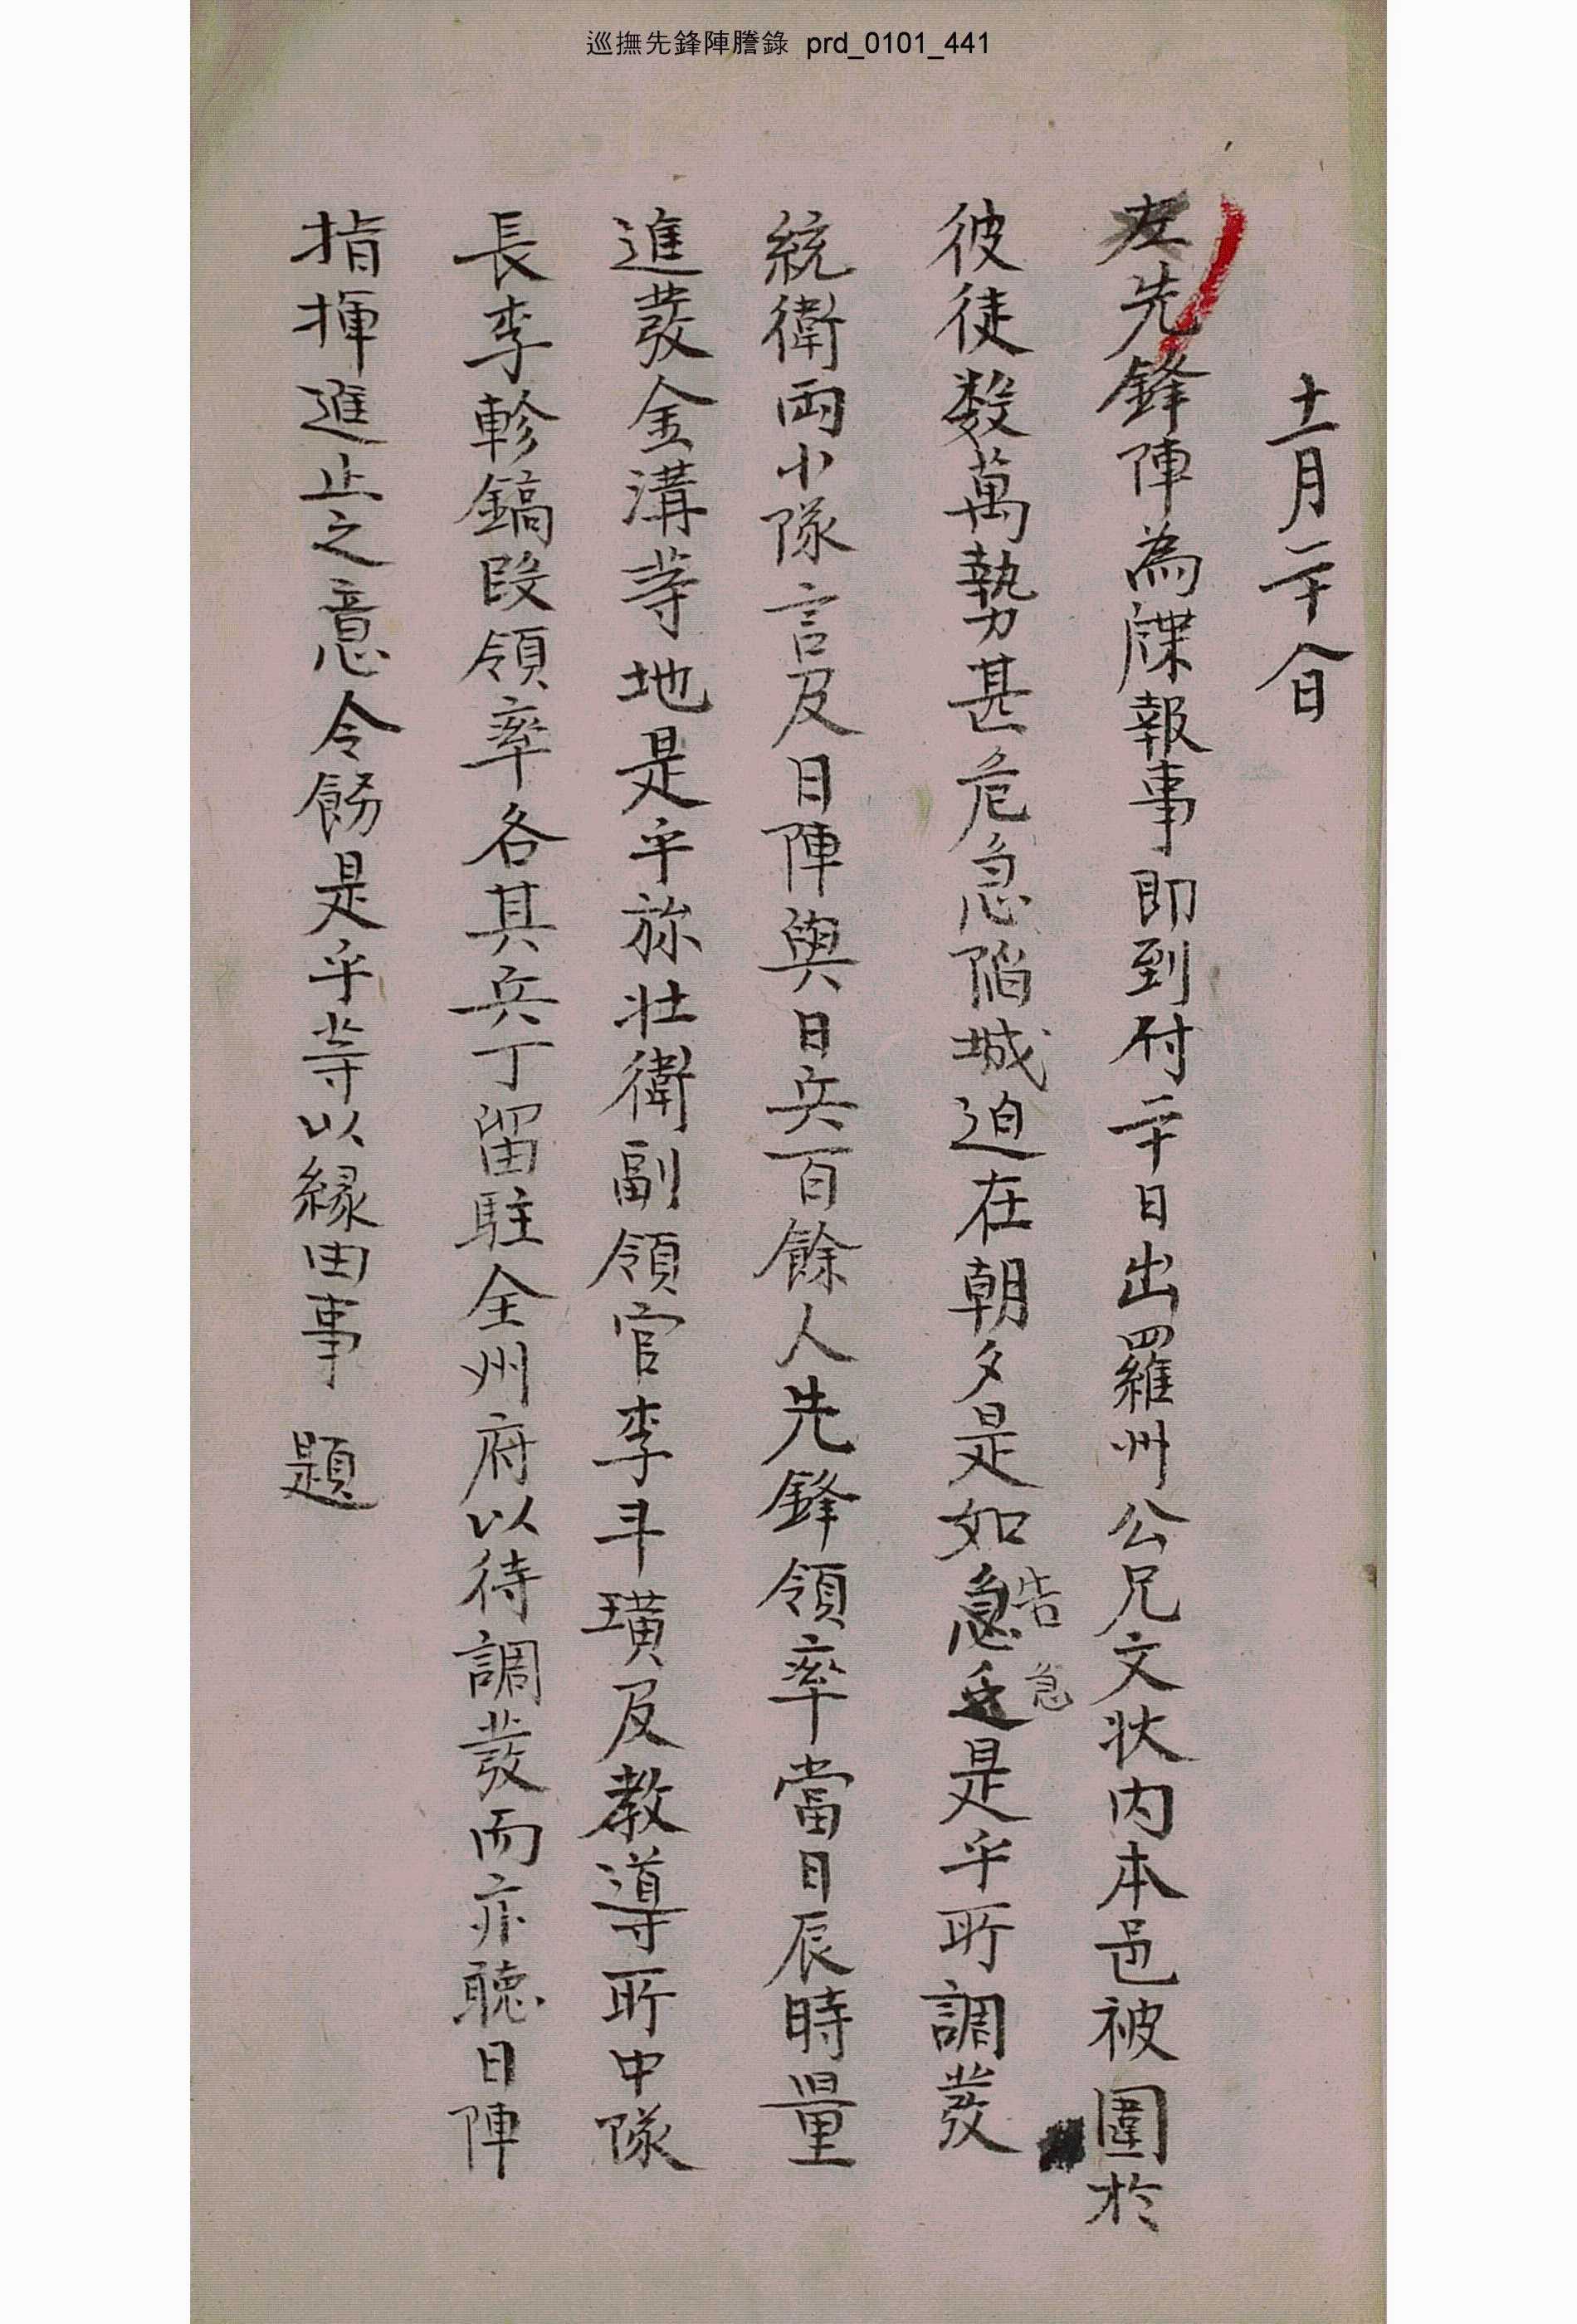 巡撫先鋒陣謄錄 prd_0101_441
十一月二十八日
左先鋒陣為牒報事即到付二十日出羅州公兄文狀内本邑被圍於
彼徒数萬勢甚危急陷城迫在朝夕是如告急是乎所調發
統衛兩小隊言及日陣與日兵一百餘人先鋒領率當日辰時量
進發金溝等地是乎旀壯衛副領官李斗璜及教導所中隊
長李軫鎬段領率各其兵丁留駐全州府以待調發而亦聽日陣
指揮進止之意令飭是乎等以緣由事 題